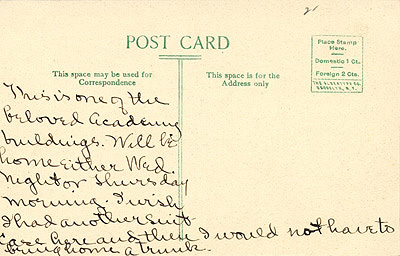 2
POST CARD
Place Stamp
Here.
Domestic 1 Ct.
Foreign 2 Cts.
THE ALBERTYPE CO.
BROOKLYN, N.Y.
This space may be used for
Correspondence
This space is for the
Address only
This is one of the
beloved Academy
buildings. Will be
home either Wed.
night or Thursday
morning. I wish
I had another suit
case here and then I would not have to
bring home a trunk.